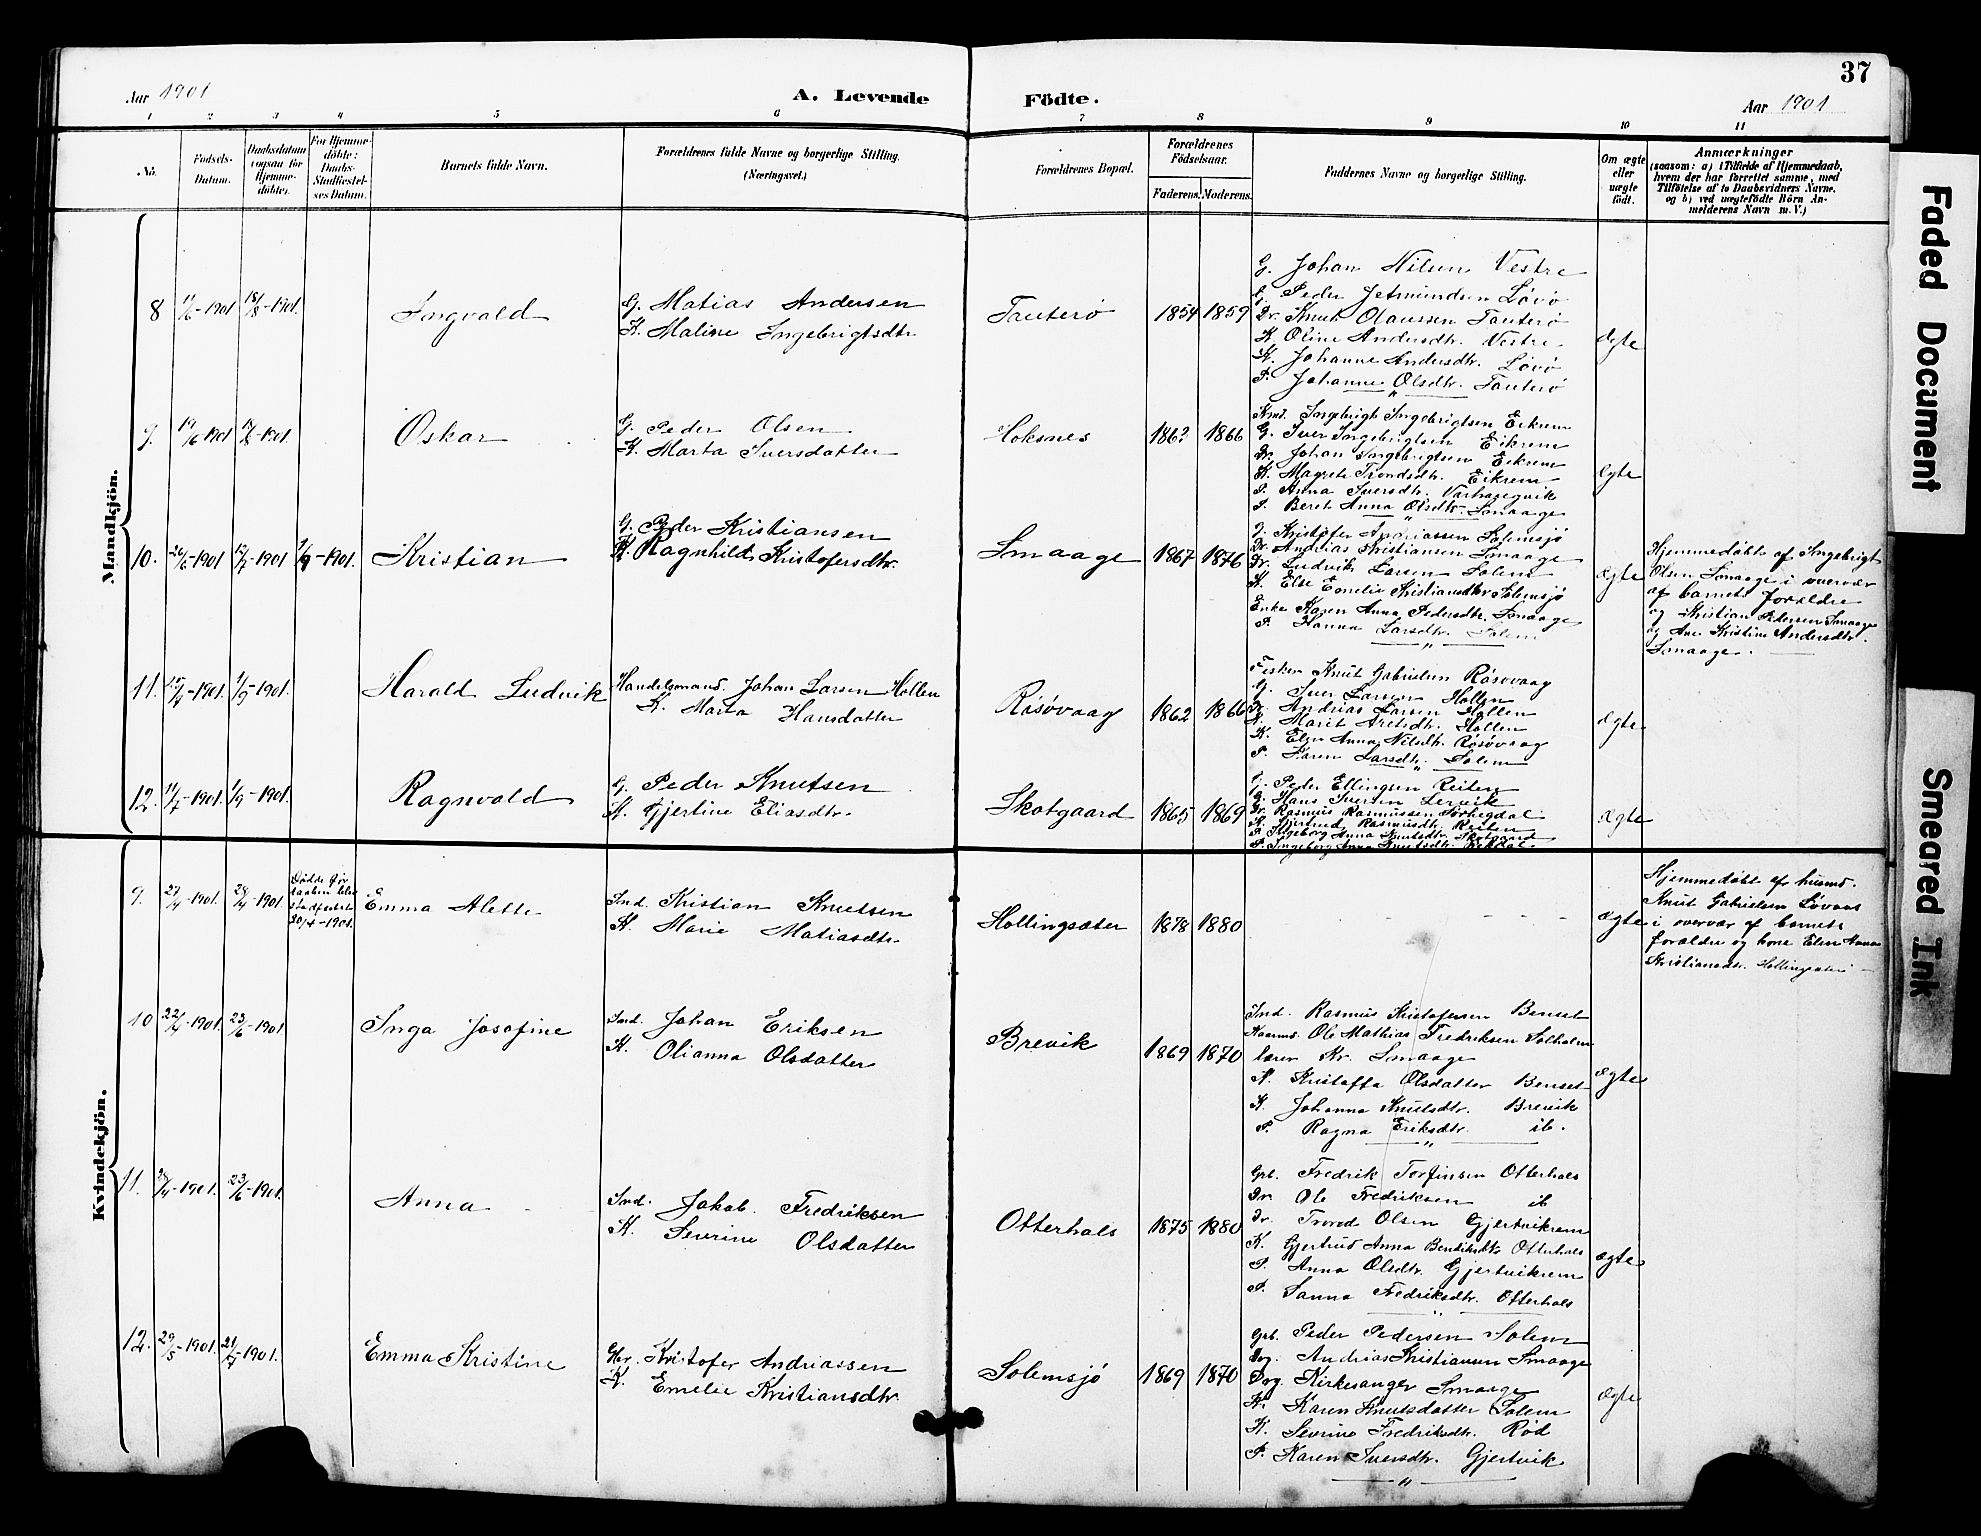 37
Aar 1901
A. Levende Födte.
Aar 1901
1 2 3 4 5 6 7 8 9 10 11
No.
Födsels-Datum.
Daabsdatum (ogsaa for Hjemmedöbte).
For Hjemmedöbte: Daabs-Stadfæstelses Datum.
Barnets fulde Navn.
Forældrenes fulde Navne og borgerlige Stilling.
(Næringsvei.)
Forældrenes Bopæl.
Forældrenes Födselsaar.
Faderens. Moderens.
Faddernes Navne og borgerlige Stilling.
Om ægte eller uægte födt.
Anmærkninger
(saasom: a) i Tilfælde af Hjemmedaab,
hvem der har forrettet samme, med
Tilföielse af to Daabsvidners Navne.
og b) ved uægtefödte Börn An-
melderens Navn m. V.)
Mandkjön.
8 11/6-1901 18/8-1901. Ingvald
G. Matias Andersen
K. Maline Ingebrigtsdtr
Tauterö 1854 1859
G. Johan Nilsen Vestre
G. Peder Jetmundsen Lövö
Dr. Knut Olaussen Tauterö
K. Oline Andersdtr. Vestre
K. Johanne Andersdtr. Lövö
P. Johanne Olsdtr. Tauterö
ægte
9. 19/6 1901 Oskar
G. Peder Olsen
K. Marta Iversdatter
Hoksnes 1866
Kmd. Ingebrigt Ingebrigtsen Eikrem
G. Iver Ingebrigtsen Eikrem
Dr. Johan Ingebrigtsen Eikrem
K. Magrete Trondsdtr. Eikrem
P. Anna Iversdtr. Varhaugvik
P. Beret Anna Olsdtr. Smaage
ægte
10. 26/6-1901 1/9-1901. Kristian
G. Peder Kristiansen
K. Ragnhild Kristofersdtr.
Smaage 1867 1876
G. Kristofer Andriassen Solemsjö
Dr. Andrias Kristiansen Smaage
Dr. Ludvik Larsen Solem
K. Else Emelie Kristiansdtr Solemsjö
Enke Karen Anna Pedersdtr. Smaage
P. Hanna Larsdtr. Solem
Ægte
Hjemmedöbt af Ingebrigt
Olsen Smaage i overvær
af barnets forældre
og Kristian Pedersen Smaage
og Ane Kristine Andersdtr.
Smaage.
11. 1/9-1901. Harald Ludvik
Handelsmand. Johan Larsen Hollen
K. Marta Hansdatter
Rösövaag 1862 1866
Fisker Knut Gabrielsen Rösövaag
G. Iver Larsen Hollen
Dr. Andrias Larsen Hollen
K. Marit Aretsdtr. Hollen
K. Elen Anna Nilsdtr. Rösövaag
P. Karen Larsdtr. Solem
ægte
12. 11/7-1901. 1/9-1901. Ragnvald
G. Peder Knutsen
K. Gjertine Eliasdtr.
Skotgaard 1865 1869
G. Peder Ellingsen Reiten
G. Hans Iversen Lervik
Dr. Rasmus Rasmussen
K. Gjertrud Rasmusdtr. Reiten
P. Ingeborg Anna Knutsdtr. Skotgaard
P. Ingeborg Anna Knutsdtr.
Ægte
Kvindekjön.
9. 27/4-1901. 28/4-1901.
Dödde för daaben blev stadfæstet 30/4-1901.
Emma Alette
Ind. Kristian Knutsen
K. Marie Matiasdtr.
Hollingsæter 1878 1880
ægte
Hjemmedöbt af husmd.
Knut Gabrielsen
i overvær af barnets
forældre og kone Elen Anna
Kristiansdtr. Hollingsæter
10 22/4-1901. 23/6-1901. Inga Josefine
Ind. Johan Eriksen
K. Olianna Olsdatter
Brevik 1869 1870
Ind. Rasmus Kristofersen Benset
Ole Mathias Fredriksen Solholm
lærer Kr. Smaage
K. Kristoffa Olsdatter Benset
K. Johanna Knutsdtr. Brevik
P. Ragna Eriksdtr. ib.
ægte
11. 23/6-1901. Anna
Ind. Jakob Fredriksen
K. Severine Olsdatter
Otterhals 1875 1880
Grb. Fredrik Torfinsen Otterhals
Dr. Ole Fredriksen ib
Dr. Trond Olsen Gjertvikrem
K. Gjertrud Anna Bendiksdtr Otterhals
P. Anna Olsdtr. Gjertvikrem
P. Sanna Fredriksdtr. Otterhals
ægte
12. 29/5-1901. 21/7-1901. Emma Kristine
Gbr. Kristofer Andriassen
K. Emelie Kristiansdtr.
Solemsjö 1869 1870
Grb. Peder Pedersen Solem
Drg. Andrias Kristiansen Smaage
Drg. Kirkesanger Smaage
K. Karen Knutsdatter Solem
K. Severine Fredriksdtr. Röd
P. Karen Iversdtr. Gjertvik
ægte
Faded Document
Smeared Ink